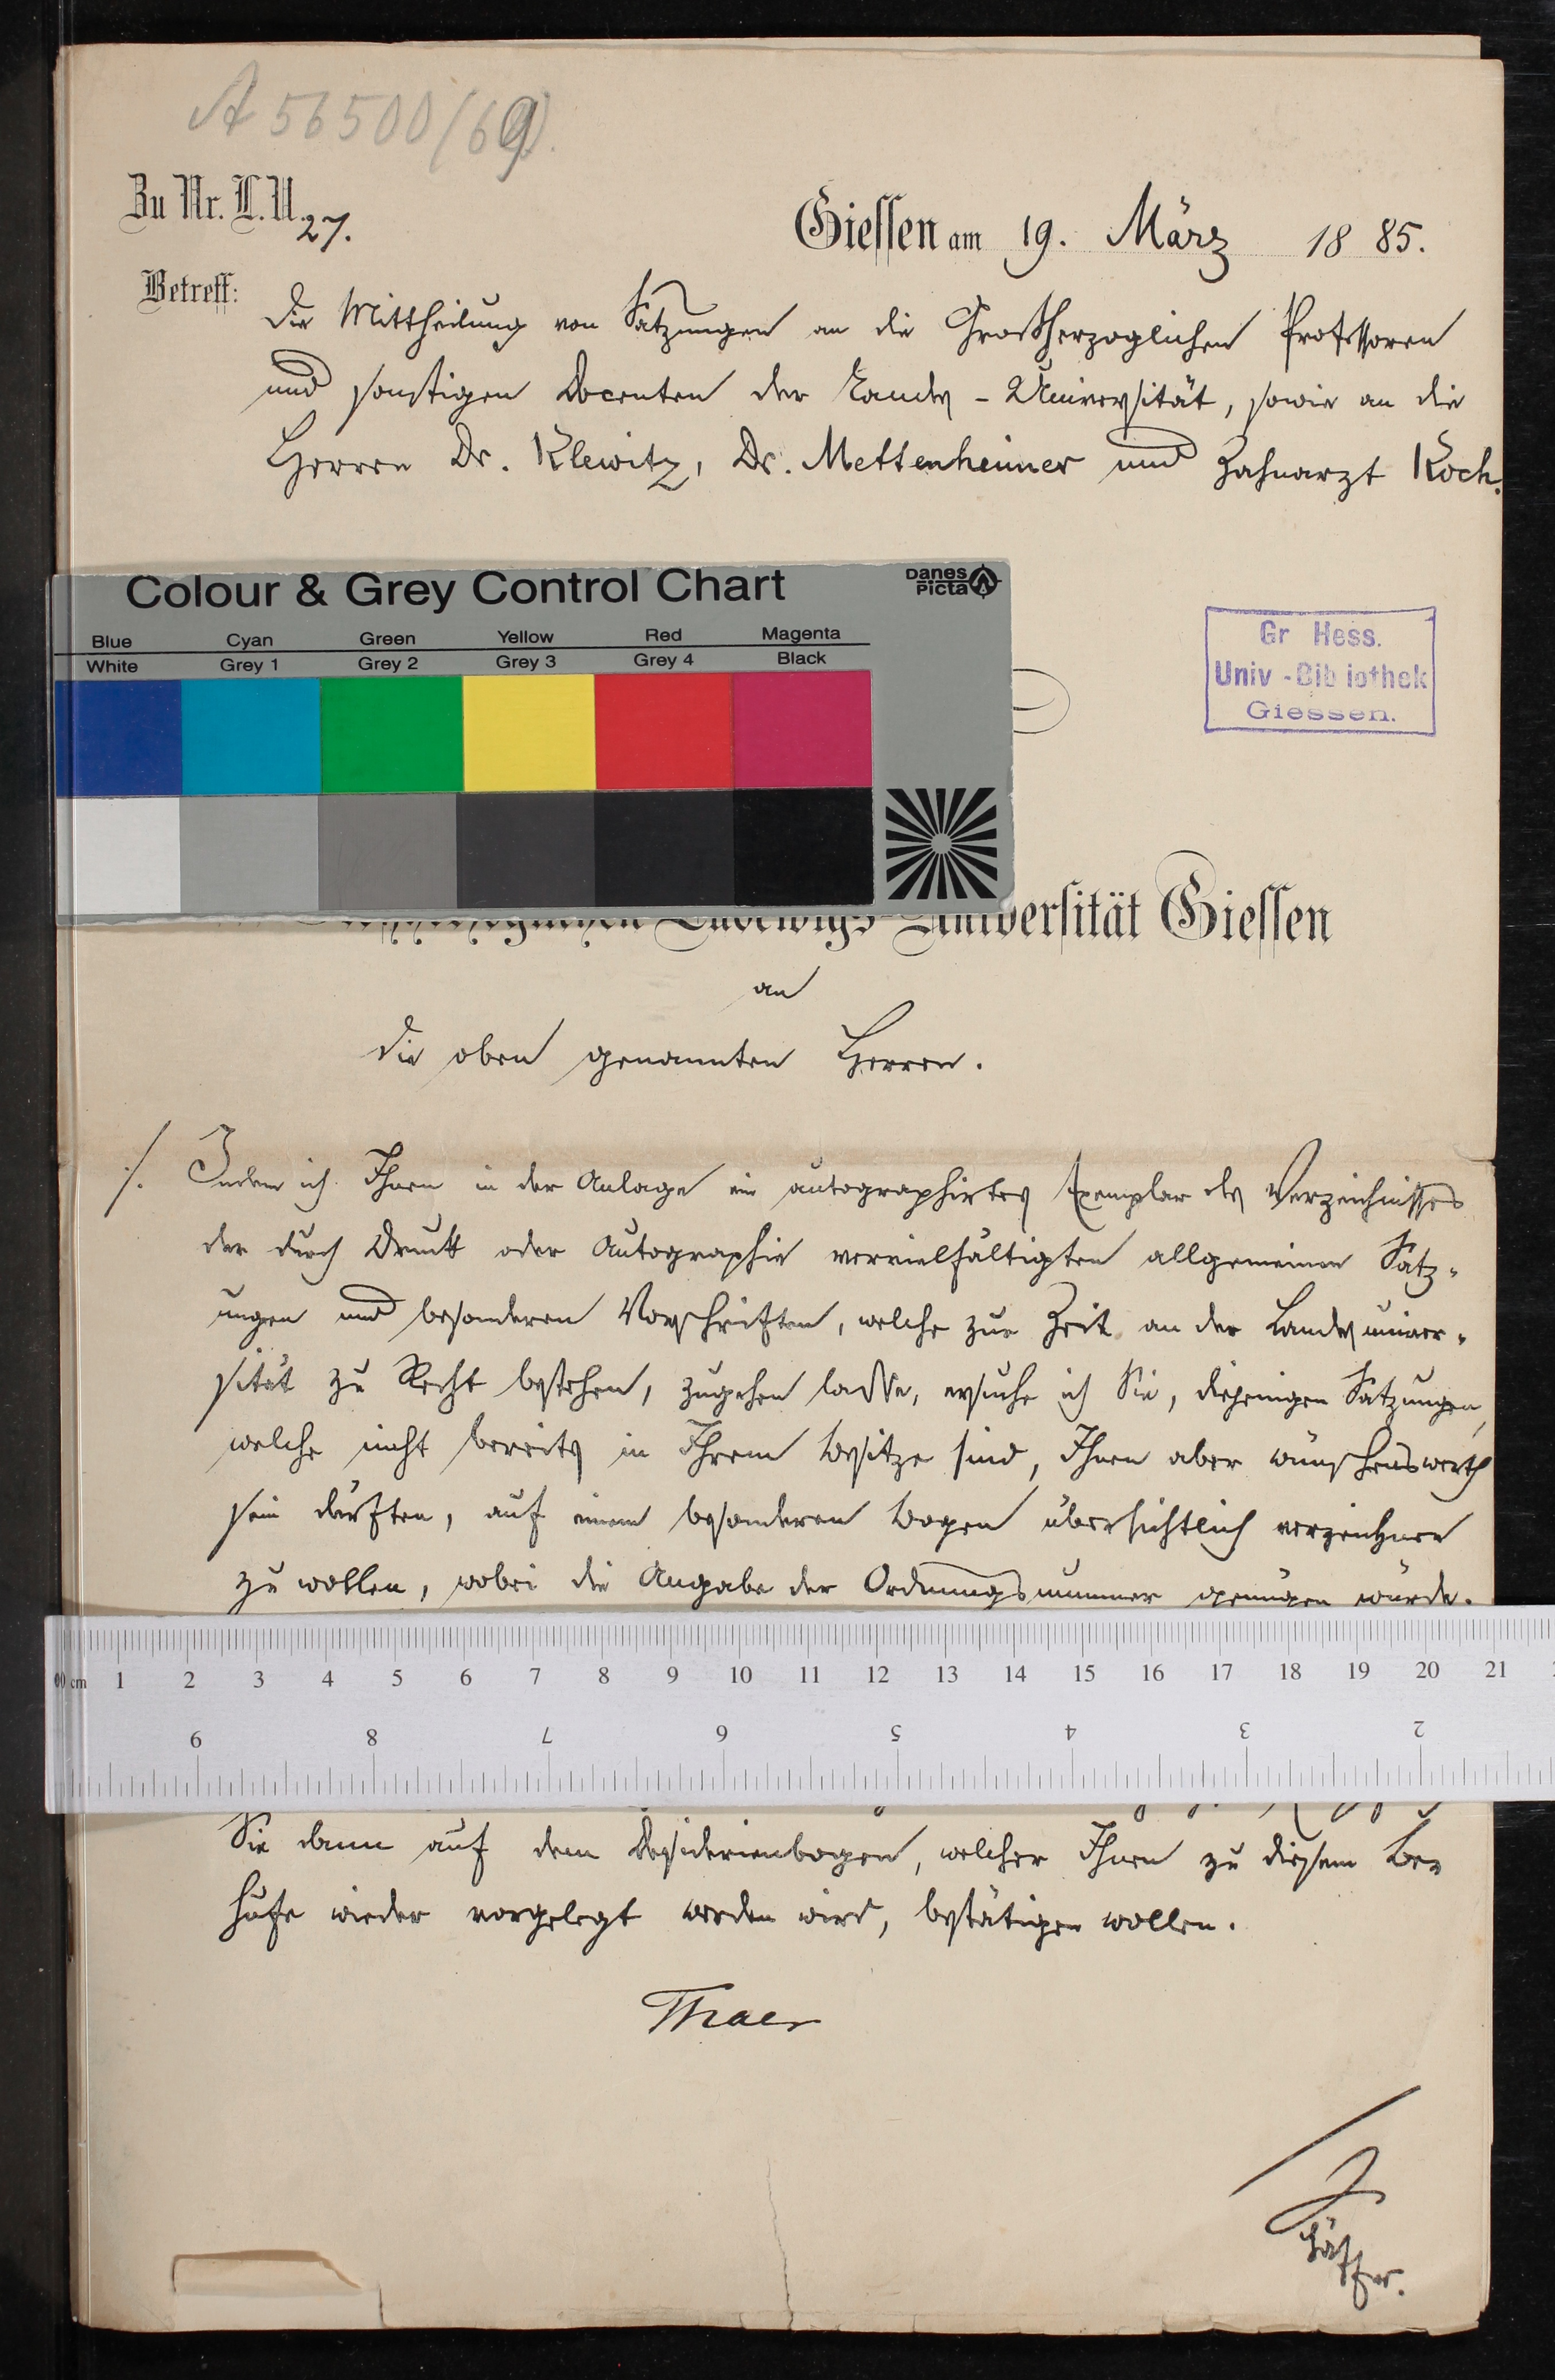 A 56500/(69).
Zu Nr. L. U. 27.
Giessen am 19. März 1885.
Betreff:
Die Mittheilung von Satzungen an die Großherzoglichen Professoren
und sonstigen Docenten der Landes-Universität, sowie an die
Herren Dr. Klewitz, Dr. Mettenheimer und Zahnarzt Koch.
Colour & Grey Control Chart
Danes Picta
Blue Cyan Green Yellow Red Magenta
White Grey 1 Grey 2 Grey 3 Grey 4 Black
Gr Hess.
Univ-Bibliothek
Giessen.
Ludewigs-Universität Giessen
an
die oben genannten Herren.
./. Indem ich Ihnen in der Anlage ein autographirtes Exemplar des Verzeichnisses
der durch Druck oder Autographie vervielfältigten allgemeinen Satz-
ungen und besonderen Vorschriften, welche zur Zeit an der Landesuniver-
sität zu Recht bestehen, zugehen lasse, ersuche ich Sie, diejenigen Satzungen,
welche nicht bereits in Ihrem Besitze sind, Ihnen aber wünschenswerth
sein dürften, auf einem besonderen Bogen übersichtlich verzeichnen
zu wollen, wobei die Angabe der Ordnungsnummer genügen würde.
00 cm 1 2 3 4 5 6 7 8 9 10 11 12 13 14 15 16 17 18 19 20 21
9 8 7 6 5 4 3 2
Sie dann auf dem Desiderienbogen, welcher Ihnen zu diesem Be-
hufe wieder vorgelegt werden wird, bestätigen wollen.
Thaer
Schäffer.